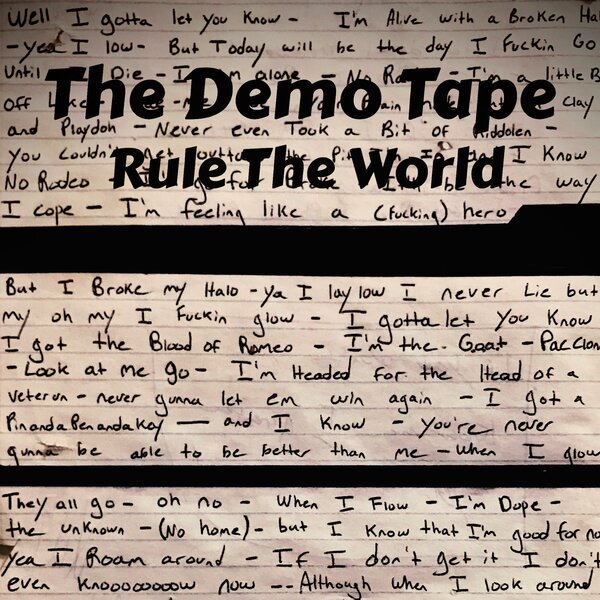 Well I gotta let you know - I'm Alive with a Broken Ha
- yea I low - But Today will be the day I Fuckin Go
Until Die - I'm alone - No Ra - I'm a little B
The Demo Tape
off Clay
and Playdoh - Never even Took a Bit of Riddolen -
You Couldn't I Know
Rule The World
No Rodeo the way
I cope - I'm feeling like a (fucking) hero
But I Broke my Halo - ya I lay low I never Lie but
my oh my I Fuckin glow - I gotta let you know
I got the Blood of Romeo - I'm the Goat - Paccion
- Look at me go - I'm Headed for the Head of a
veterun - never gunna let em win again - I got a
Pin and a Pen and a Key — and I know - you're never
gunna be able to be better than me - when I glow
They all go - oh no - when I Flow - I'm Dope -
the unknown - (No home) - but I know that I'm good for no
yea I Roam around - If I don't get it I don't
even knooooooow now -- Although when I look around